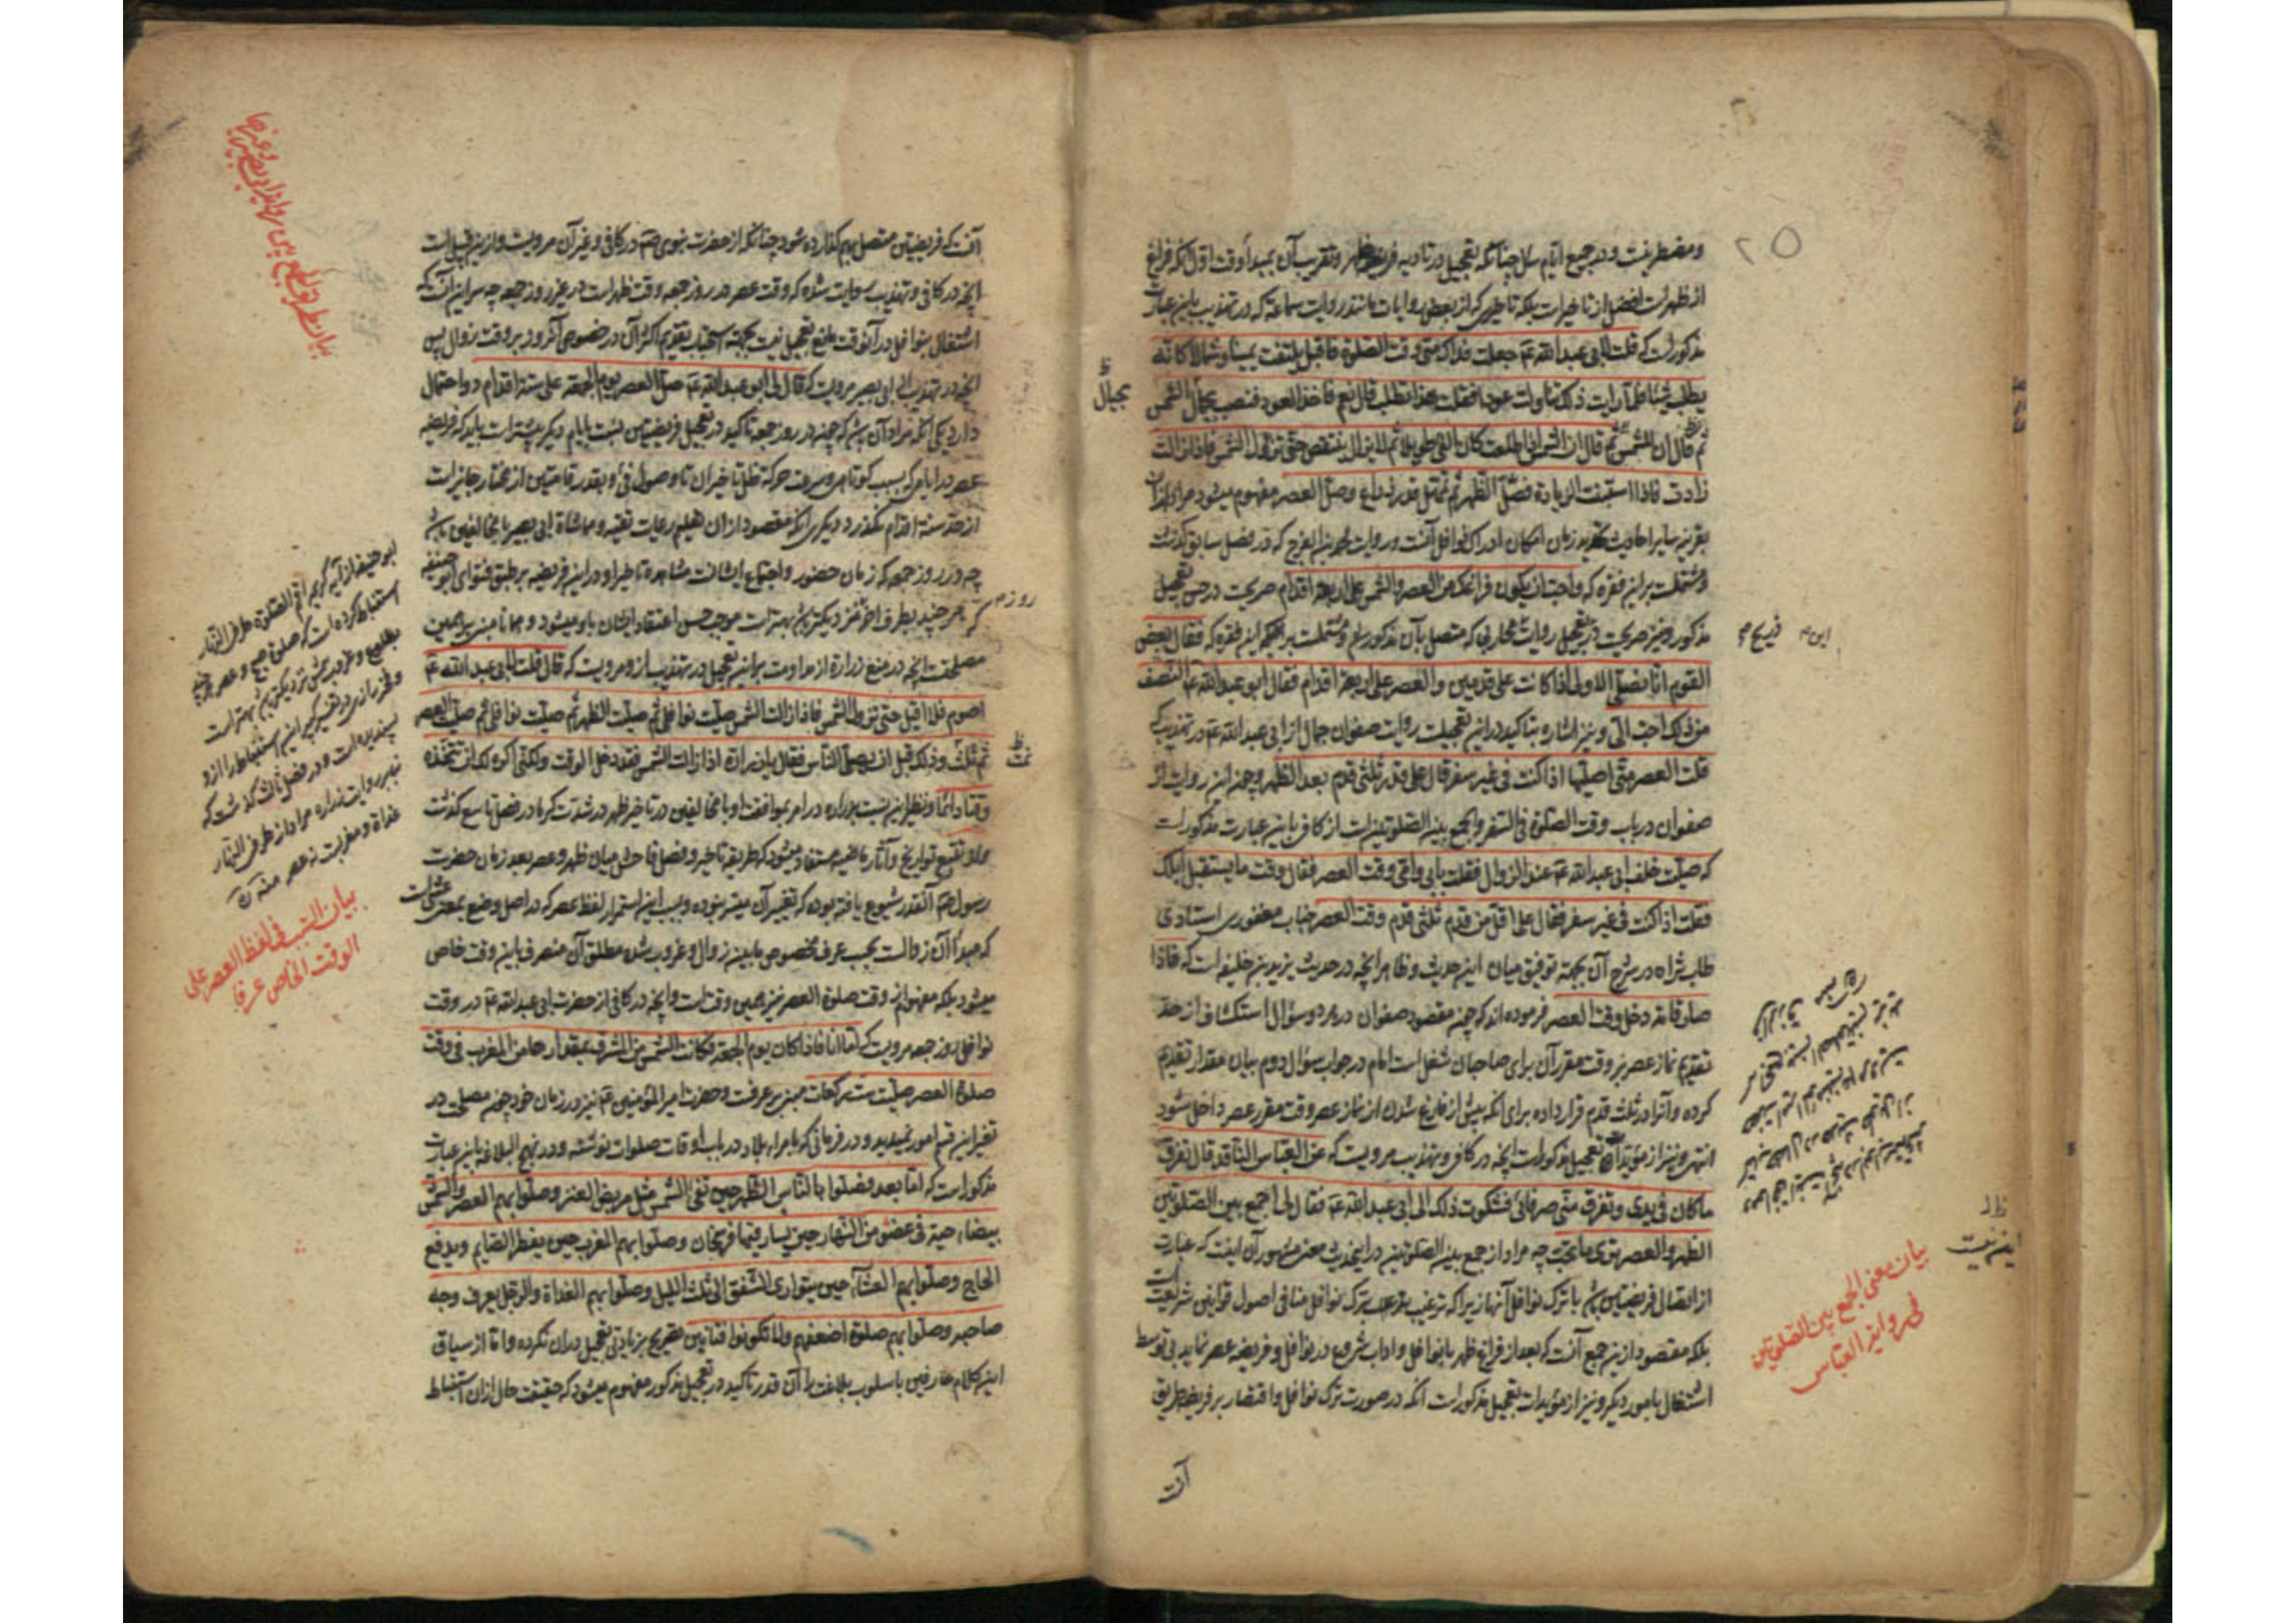 ۲۵
و مضطر نیست و در جمیع ایام سال چنانکه تعجیل در تادیه فریضه ظهر و تقریب آن بمبدأ وقت اول آنکه فراغ
از ظهر است افضل از تاخیر است بلکه تاخیری که از بعض روایات مانند روایت سماعه که در تهذیب باین عبارت
مذکور است که قلت لابی عبدالله عم جعلت فداک متی وقت الصلوة فاقبل یلتفت یمینا و شمالا کانه
یطلب شیئا فلما رایت ذلک تناولت عودا فقلت هذا تطلب قال نعم فاخذ العود فنصب بحیال الشمس
ثم قال ان الشمس ثم قال ان الشمس اذا طلعت کان الفی طویلا ثم لایزال ینقص حتی تزول الشمس فاذا زالت
زادت فاذا استبنت الزیادة فصل الظهر ثم تمهل قدر ذراع و صل العصر مفهوم میشود مراد ازان
بقرینه سایر احادیث تحدید زمان امکان ادراک نوافل آنست و روایت محمد بن الفرج که در فصل سابق گذشت
و مشتملست براین فقره که واحب ان یکون فراغک من العصر والشمس علی اربعة اقدام صریحست در حسن تعجیل
مذکور و نیز صریحست در تعجیل روایت محاربی که متصل بآن مذکور شد و مشتملست بر این فقره که فقال بعض
القوم انا نصلی الاولی اذا کانت علی قدمین والعصر علی اربعة اقدام فقال ابو عبدالله عم النصف
من ذلک احب الی و نیز اشاره بتاکید در این تعجیلست روایت صفوان جمال از ابی عبدالله عم در تهذیب که
قلت العصر متی اصلیها اذا کنت فی غیر سفر قال علی قدر ثلثی قدم بعد الظهر و چون این روایت از
صفوان در باب وقت الصلوة فی السفر والجمع بین الصلوتین است از کافی باین عبارت مذکور است
که صلیت خلف ابی عبدالله عم عند الزوال فقلت بابی و امی وقت العصر فقال وقت ما یستقبل ابلک
فقلت اذا کنت فی غیر سفر فقال علی اقل من قدم ثلثی قدم وقت العصر جناب مغفوری استادی
طاب ثراه در شرح آن بجهة توفیق میان این حدیث و ظاهر آنچه در حدیث یزید بن خلیفه است که فاذا
صار قامة دخل وقت العصر فرموده اند که چون مقصود صفوان در هر دو سؤال استکشاف از حد
تقدیم نماز عصر بر وقت مقرر آن برای صاحبان شغل است امام در جواب سؤال دوم بیان مقدار تقدیم
کرده و آنرا در ثلث قدم قرار داده برای آنکه پیش از فارغ شدن از نماز عصر وقت مقرر عصر داخل شود
انتهی و نیز از مؤیدات تعجیل مذکور است آنچه در کافی و تهذیب مرویست که عن العباس الناقد قال تفرق
ما کان فی یدی و تفرق عنی حرفائی فشکوت ذلک الی ابی عبدالله عم فقال لی اجمع بین الصلوتین
الظهر والعصر تری ما تحب چه مراد از جمع بین الصلوتین در این حدیث معنی مشهور آن نیست که عبارت
از اتصال فریضتین باشد با ترک نوافل آنها زیرا که ترغیب بر ترک نوافل منافی اصول قوانین شریعت است
بلکه مقصود از این جمع آنست که بعد از فراغ ظهر با نوافل و اداب شروع در نوافل و فریضه عصر نماید بی توسط
اشتغال بامور دیگر و نیز از مؤیدات تعجیل مذکور است آنکه در صورت ترک نوافل و اقتصار بر فریضه طریق
آنست
بحیال
بیان معنی الجمع بین الصلوتین
فی روایة العباس
آنست که فریضتین متصل بهم گذارده شود چنانکه از حضرت نبوی صم در کافی و غیر آن مرویست و از این قبیل است
آنچه در کافی و تهذیب روایت شده که وقت عصر در روز جمعه وقت ظهر است در غیر روز جمعه چه سر این آنست که
اشتغال بنوافل در آنوقت مانع تعجیل نیست بجهة استحباب تقدیم اکثر آن در خصوص آنروز بر وقت زوال پس
آنچه در تهذیب از ابی بصیر مرویست که قال لی ابو عبدالله عم صل العصر یوم الجمعة علی ستة اقدام دو احتمال
دارد یکی آنکه مراد آن باشد که چون در روز جمعه تاکید در تعجیل فریضتین نسبت بایام دیگر بیشتر است باید که فریضه
عصر در ایامی که بسبب کوتاهی و سرعت حرکة ظل تاخیر آن تا وصول فیء بقدر قامتین از مختار جایز است
از حد ستة اقدام نگذرد دیگری آنکه مقصود از ان تعلیم رعایت تقیه و مماشاة ابی بصیر با مخالفین باشد
چه در روز جمعه که زمان حضور و اجتماع ایشانست مشاهده تاخیر او در این فریضه بر طبق فتوای ابو حنیفه
که هر چند بطرف اخر نزدیکتر باشد بهتر است موجب حسن اعتقاد ایشان باو میشود و همانا مبنی بر همین
مصلحتست آنچه در منع زراره از مداومت براین تعجیل در تهذیب از و مرویست که قال قلت لابی عبدالله عم
اصوم فلا اقیل حتی تزول الشمس فاذا زالت الشمس صلیت نوافلی ثم صلیت الظهر ثم صلیت نوافلی ثم صلیت العصر
ثم نمت و ذلک قبل ان یصلی الناس فقال یا زرارة اذا زالت الشمس فقد دخل الوقت ولکنی اکره لک ان تتخذه
وقتا دائما و نظیر این نسبت بزراره در امر بموافقت او با مخالفین در تاخیر ظهر در شدت گرما در فصل تاسع گذشت
و از تتبع تواریخ و آثار ماضیه مستفاد میشود که طریقه تاخیر و فصل فاحش میان ظهر و عصر بعد زمان حضرت
رسول صم آنقدر شیوع یافته بوده که تغییر آن میسر نبوده و بسبب این استمرار لفظ عصر که در اصل وضع بمعنی عشی است
که مبدأ آن زوالست بحسب عرف مخصوص مابین زوال و غروب شده مطلق آن منصرف باین وقت خاص
میشود بلکه مفهوم از وقت صلوة العصر نیز همین وقت است و آنچه در کافی از حضرت ابی عبدالله عم در وقت
نوافل روز جمعه مرویست که اما انا فاذا کان یوم الجمعة و کانت الشمس من المشرق بمقدارها من المغرب فی وقت
صلوة العصر صلیت ست رکعات مبنی بر عرفست و حضرت امیر المؤمنین عم نیز در زمان خود چون مصلحت در
تغییر این قسم امور نمیدید و در فرمانی که بامراء بلاد در باب اوقات صلوات نوشته و در نهج البلاغه باین عبارت
مذکور است که اما بعد فصلوا بالناس الظهر حین تفیء الشمس مثل مربض العنز وصلوا بهم العصر والشمس
بیضاء حیة فی عضو من النهار حین یسار فیها فرسخان وصلوا بهم المغرب حین یفطر الصایم ویدفع
الحاج وصلوا بهم العشاء حین یتواری الشفق الی ثلث اللیل وصلوا بهم الغداة والرجل یعرف وجه
صاحبه وصلوا بهم صلوة اضعفهم ولا تکونوا فتانین تصریح بزیادتی تعجیل دران نکرده و اما از سیاق
این کلام عارفین باسلوب بلاغت را آن قدر تاکید در تعجیل مذکور مفهوم میشود که حقیقت حال ازان استنباط
ابو حنیفه از آیه کریمه اقم الصلوة طرفی النهار
استنباط کرده است که صلوة صبح و عصر هر چند
بطلوع و غروب شمس نزدیکتر باشد بهتر است
و فخر رازی در تفسیر کبیر این استنباط را از و
پسندیده است و در فصل ثالث گذشت که
بنابر روایت زراره مراد از طرفی النهار
غداة و مغربست نه عصر منه ره
بیان السبب فی لفظ العصر علی
الوقت الخاص عرفا